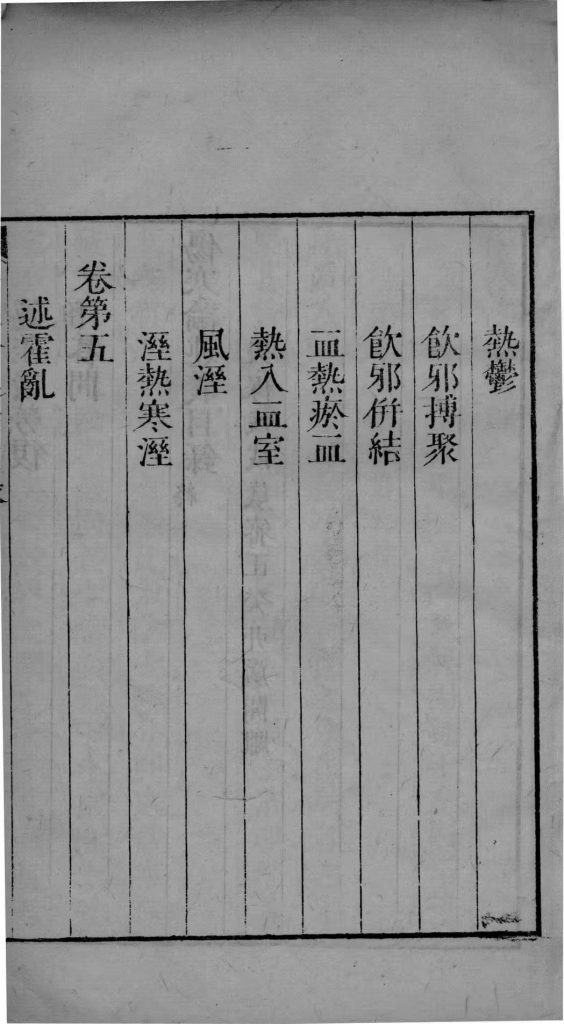 熱鬱
飮邪搏聚
飮邪倂結
血熱瘀血
熱入血室
風溼
溼熱寒溼
卷第五
述霍亂